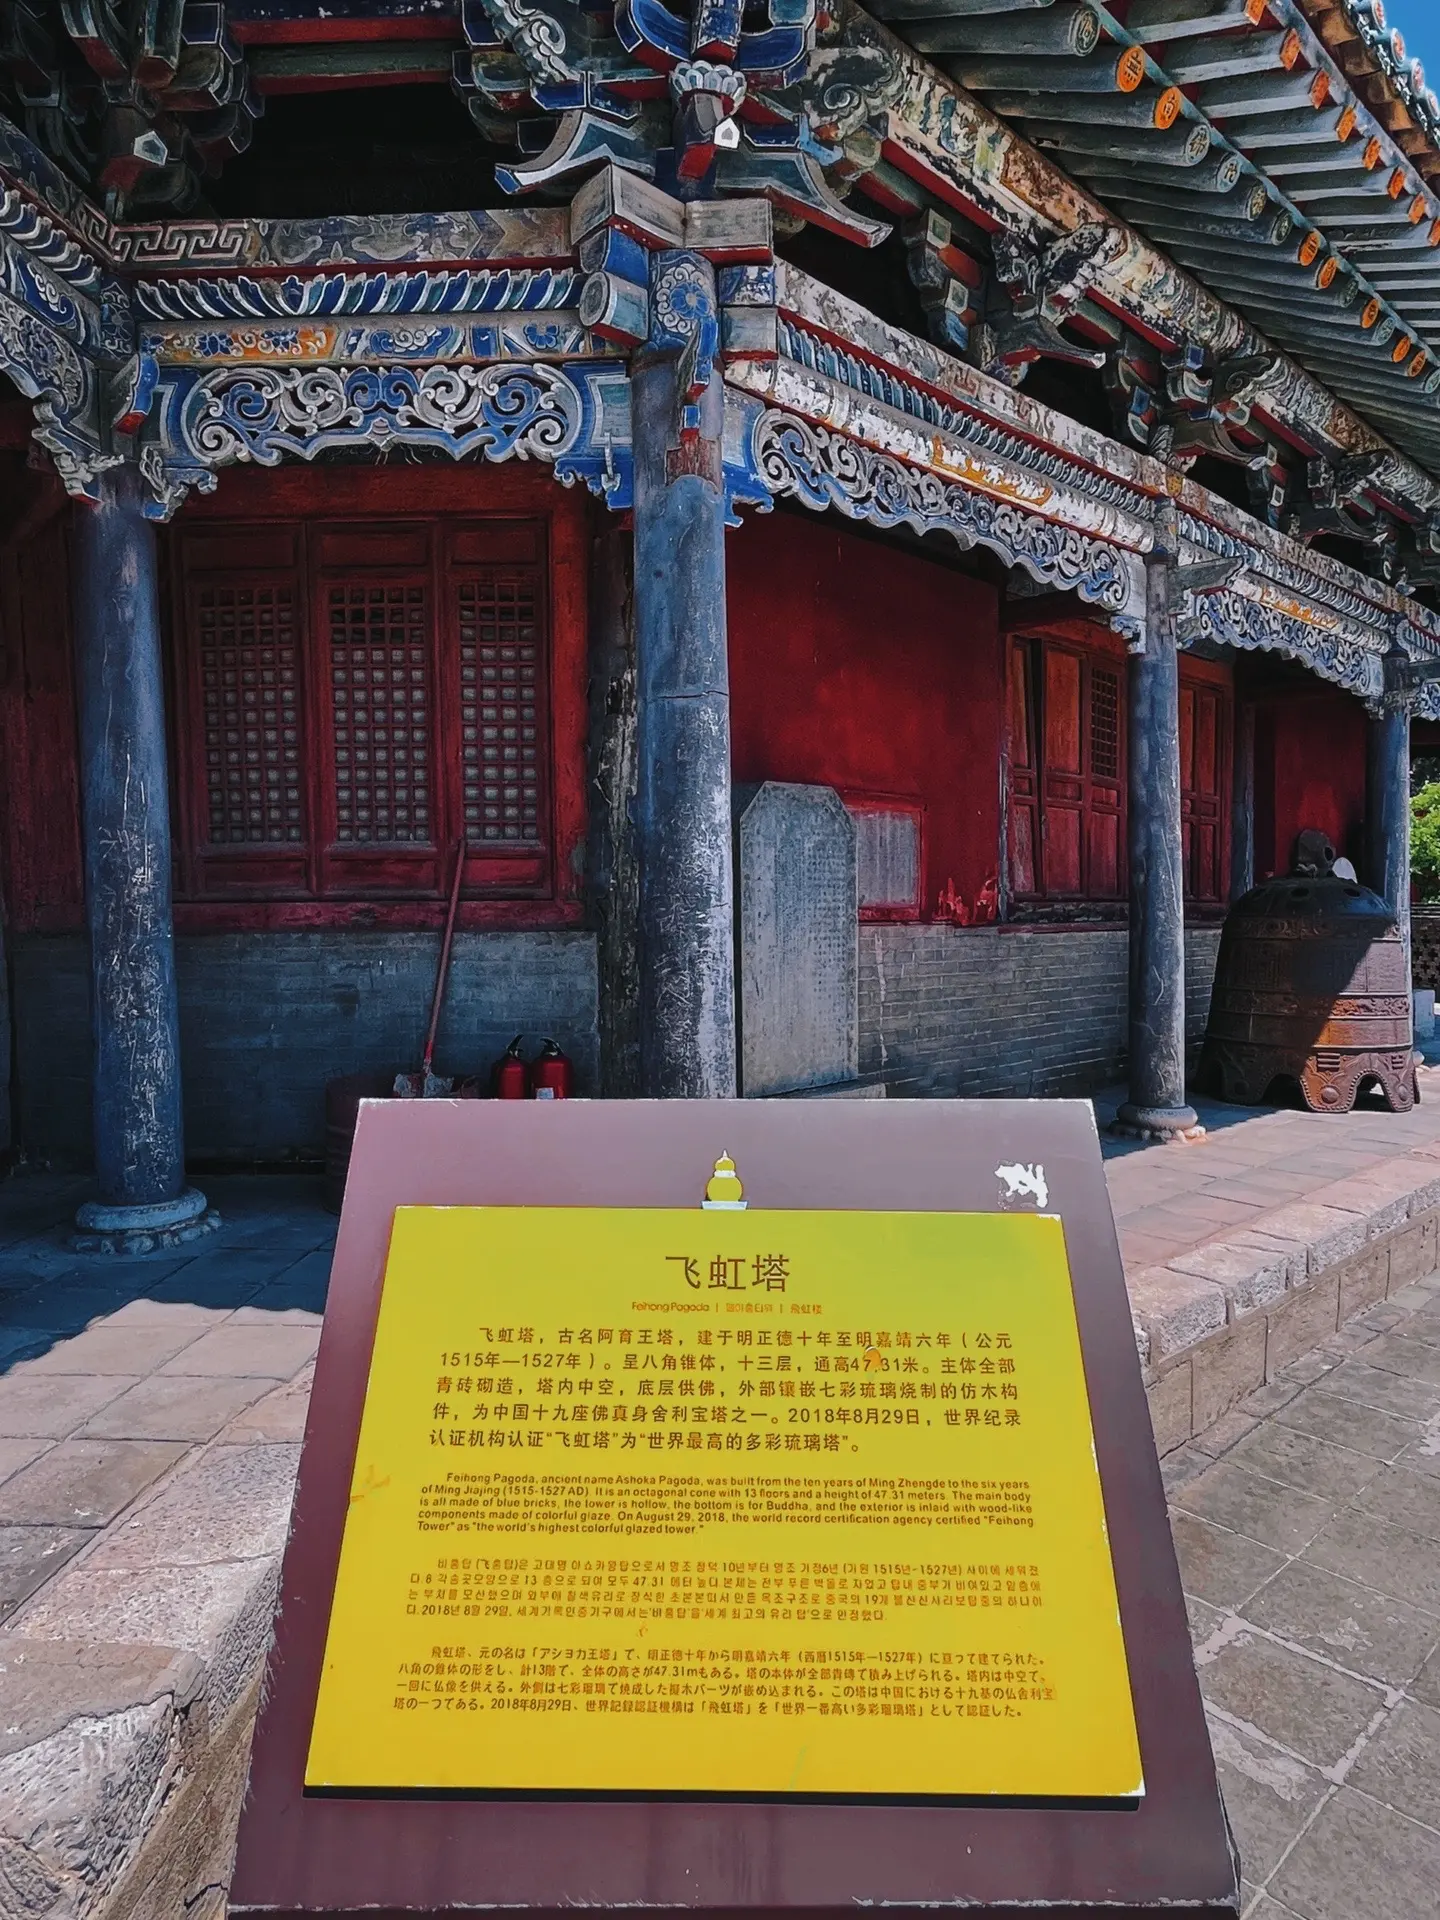 飞虹塔
Feihong Pagoda | 페이홍타워 | 飛虹楼
飞虹塔，古名阿育王塔，建于明正德十年至明嘉靖六年（公元
1515年—1527年）。呈八角锥体，十三层，通高47.31米。主体全部
青砖砌造，塔内中空，底层供佛，外部镶嵌七彩琉璃烧制的仿木构
件，为中国十九座佛真身舍利宝塔之一。2018年8月29日，世界纪录
认证机构认证“飞虹塔”为“世界最高的多彩琉璃塔”。
Feihong Pagoda, ancient name Ashoka Pagoda, was built from the ten years of Ming Zhengde to the six years
of Ming Jiajing (1515-1527 AD). It is an octagonal cone with 13 floors and a height of 47.31 meters. The main body
is all made of blue bricks, the lower is hollow, the bottom is for Buddha, and the exterior is inlaid with wood-like
components made of colorful glaze. On August 29, 2018, the world record certification agency certified "Feihong
Tower" as "the world's highest colorful glazed tower."
비홍탑 (飞虹塔)은 고대명 아쇼카왕탑으로서 명조 정덕 10년부터 명조 가정6년 (기원 1515년-1527년) 사이에 세워졌
다. 8 각송곳모양으로 13 층으로 되여 모두 47.31 메터 높다. 본체는 전부 푸른 벽돌로 지었고 탑내 중부가 비여있고 밑층에
는 부처를 모산했으며 외부에 칠색유리로 장식한 초본본따서 만든 목조구조로 중국의 19개 불신신사리보탑중의 하나이
다. 2018년 8월 29일, 세계기록인증기구에서는'비홍탑'을'세계 최고의 유리 탑'으로 인정했다.
飛虹塔、元の名は「アショカ王塔」で、明正徳十年から明嘉靖六年（西暦1515年—1527年）に亘って建てられた。
八角の錐体の形をし、計13階で、全体の高さが47.31mもある。塔の本体が全部青磚で積み上げられる。塔内は中空で、
一回に仏像を供える。外側は七彩瑠璃で焼成した擬木パーツが嵌め込まれる。この塔は中国における十九基の仏舎利宝
塔の一つである。2018年8月29日、世界記録認証機構は「飛虹塔」を「世界一番高い多彩瑠璃塔」として認証した。